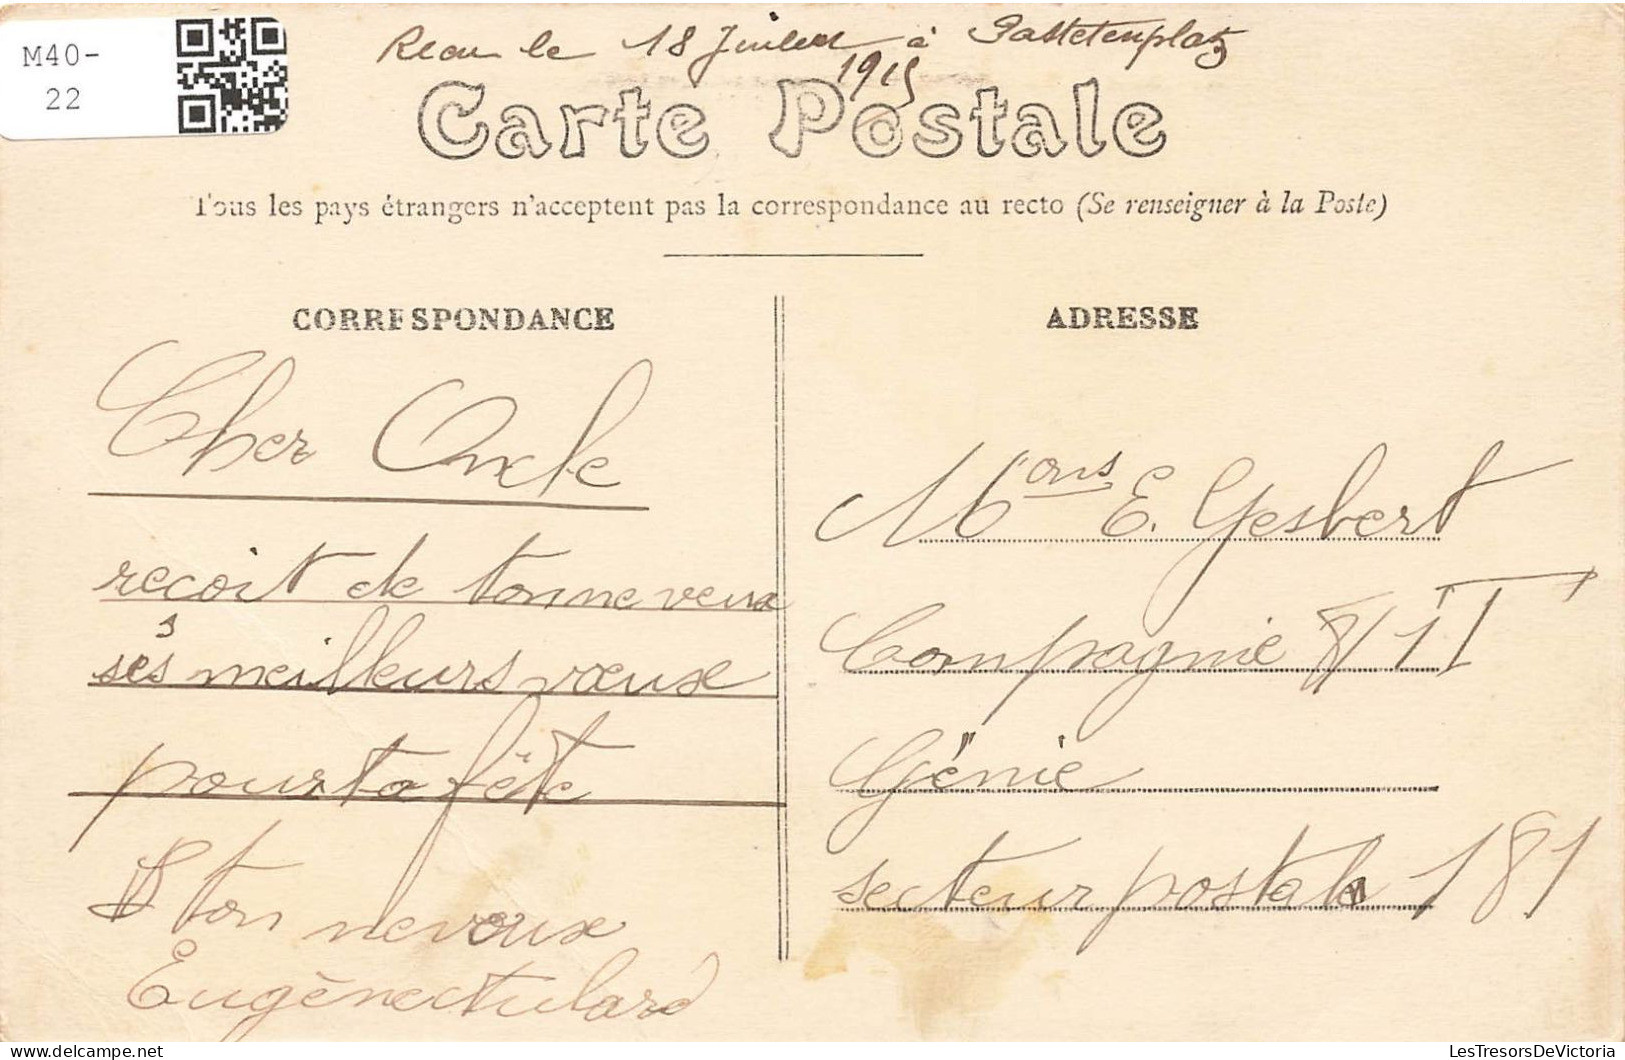 M40-
22
le 18 Juillet à Pattetenplatz
1915
Carte Postale
Tous les pays étrangers n'acceptent pas la correspondance au recto (Se renseigner à la Poste)
CORRESPONDANCE
ADRESSE
Cher Oncle
reçoit de tonneveux
ses meilleurs vœux
pour ta fête
ton neveoux
Eugène
Mons E. Gesbert
Compagnie 8/1T
Génie
secteur postale 181
LesTresorsDeVictoria